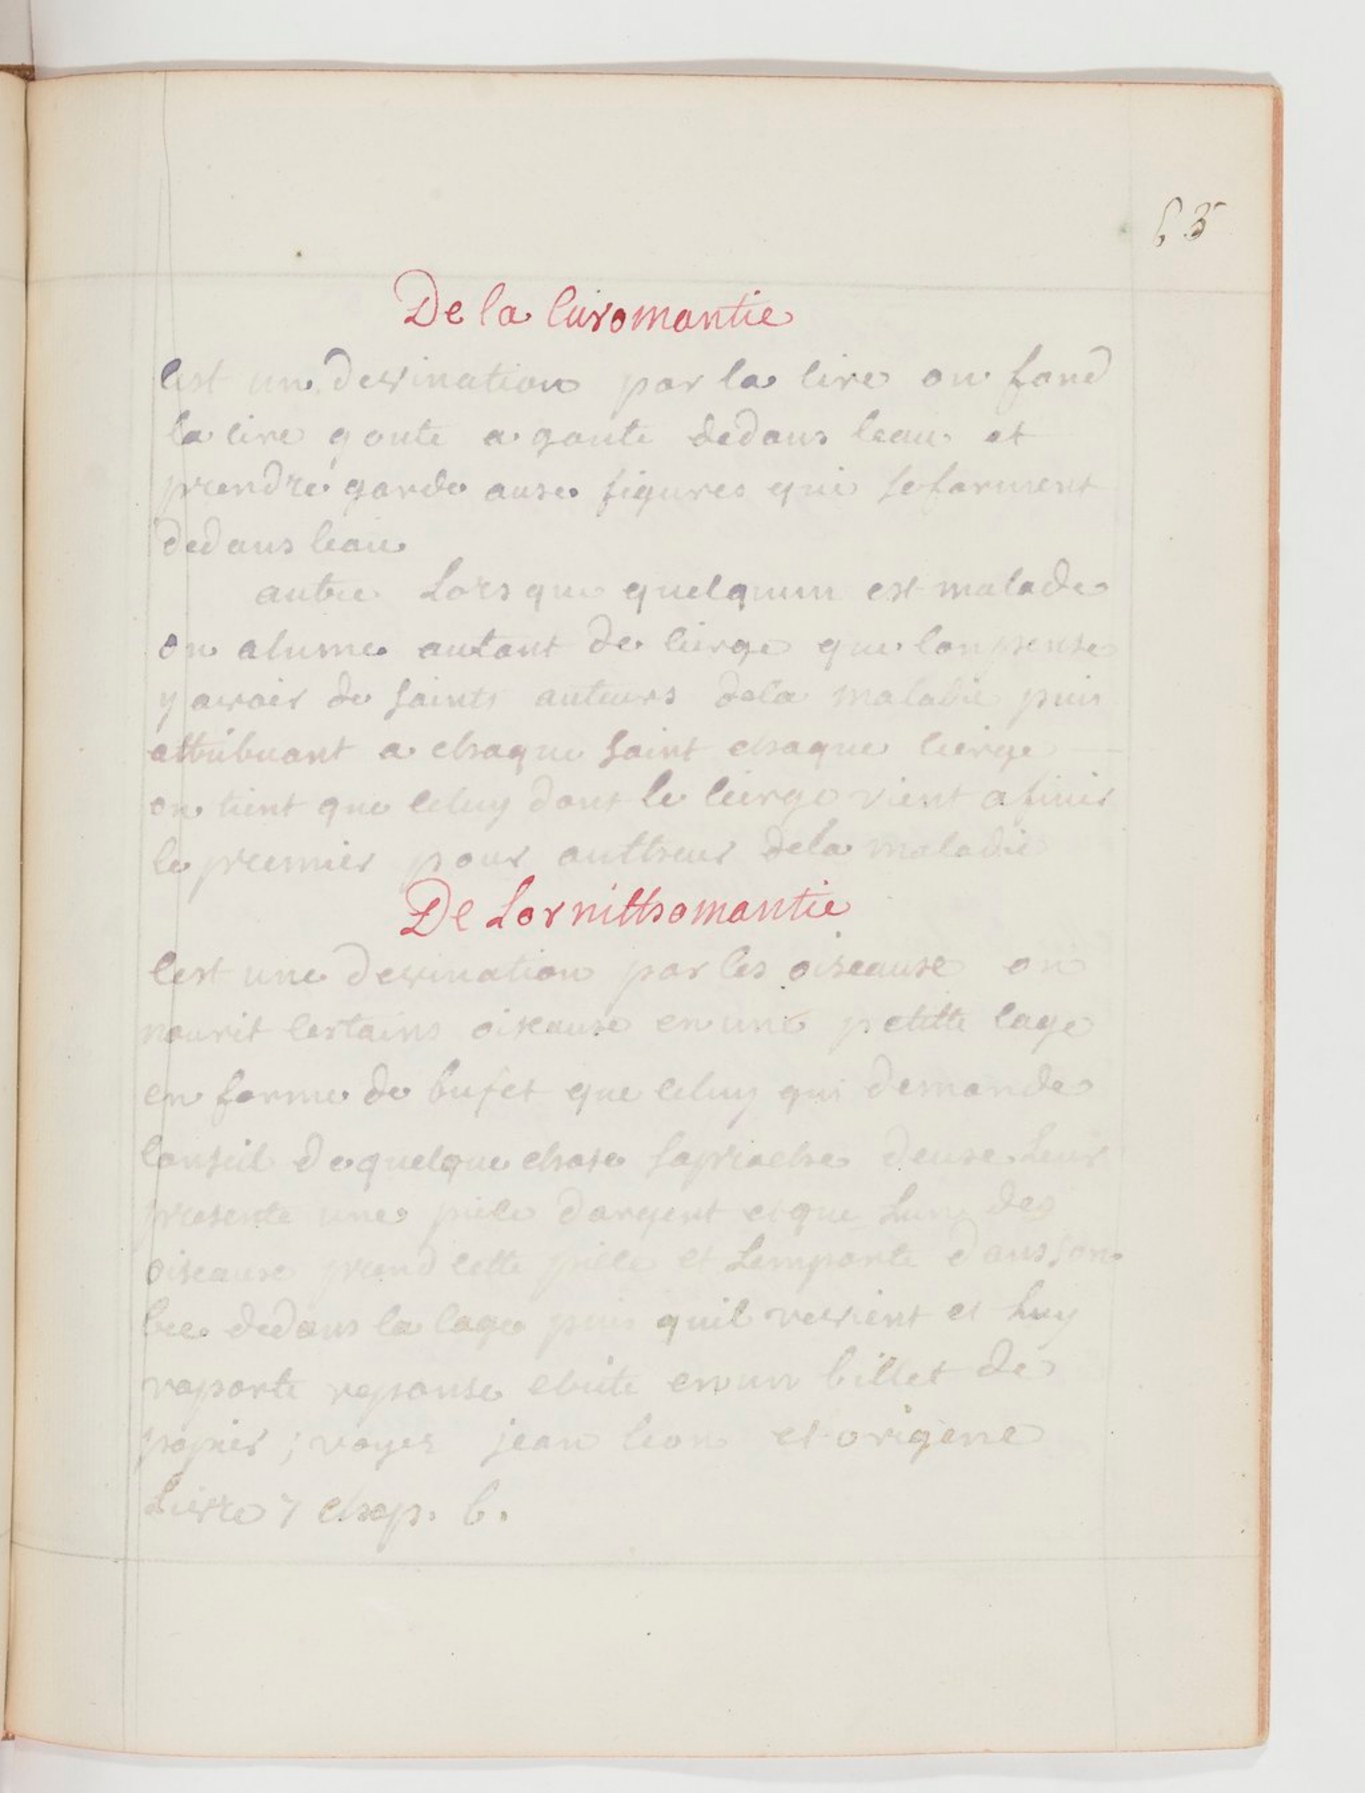 63
De la Ciromantie
Cest un devination par la cire on fond
la cire goute a goute dedans leau et
prendre garde ause figures qui se forment
dedans leau
autre Lors que quelquun est malade
on alume autant de cierge que lon pense
y avoir de saints auteurs dela maladie puis
attribuant a chaque saint chaque cierge
on tient que celuy dont le cierge vient a finir
le premier pour autheur dela maladie
De Lornithomantie
Cest une devination par les oiseause on
nourit certains oiseause en une petitte cage
en forme de bufet que celuy qui demande
conseil de quelque chose saproche deuse Leur
presente une piece dargent et que Lun des
oiseause prend cette piece et Lemporte dans son
bec dedans la cage puis quil revient et Luy
raporte reponse ecrite en un billet de
papier ; voyez jean leon et origene
Livre 7 chap. 6.